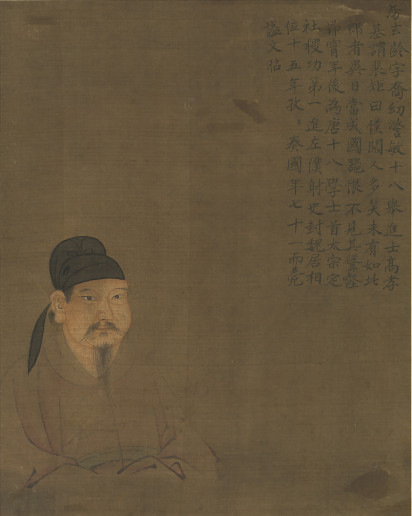 房玄齡字喬幼警敏十八舉進士高孝
基謂裴矩曰僕閱人多矣未有如此
郎者異日當成國器恨不見其聳壑
昂霄耳後為唐十八學士首太宗定
社稷功第一進左僕射史封魏居相
位十五年孜〻奉國年七十一而薨
諡文昭